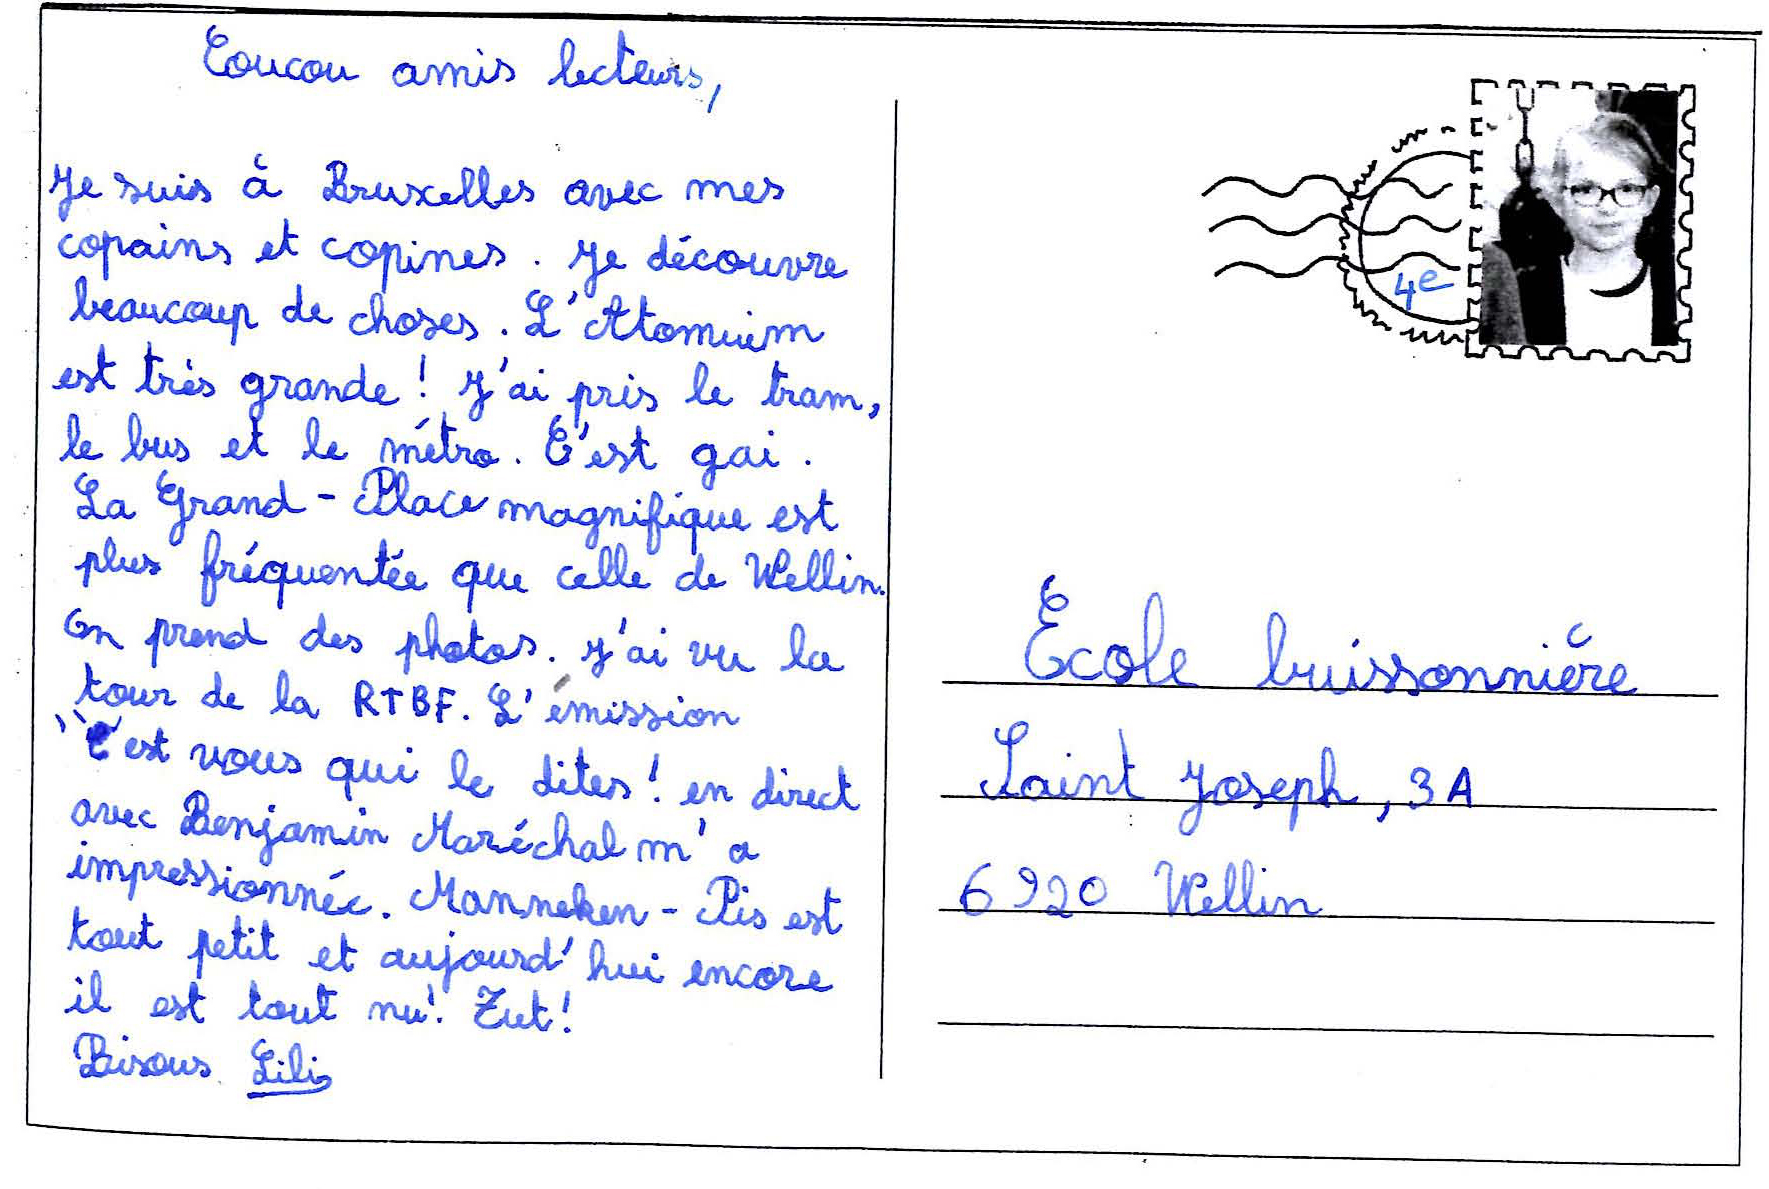 Coucou amis lecteurs,
Je suis à Bruxelles avec mes
copains et copines. Je découvre
beaucoup de choses. L'Atomuim
est très grande! J'ai pris le tram,
le bus et le métro. C'est gai.
La Grand-Place magnifique est
plus fréquentée que celle de Wellin.
On prend des photos. J'ai vu la
tour de la RTBF. L'émission
"C'est vous qui le dites! en direct
avec Benjamin Maréchal m'a
impressionnée. Manneken-Pis est
tout petit et aujourd'hui encore
il est tout nu! Zut!
Bisous Lili
4e
École buissonnière
Saint Joseph, 3A
6920 Wellin